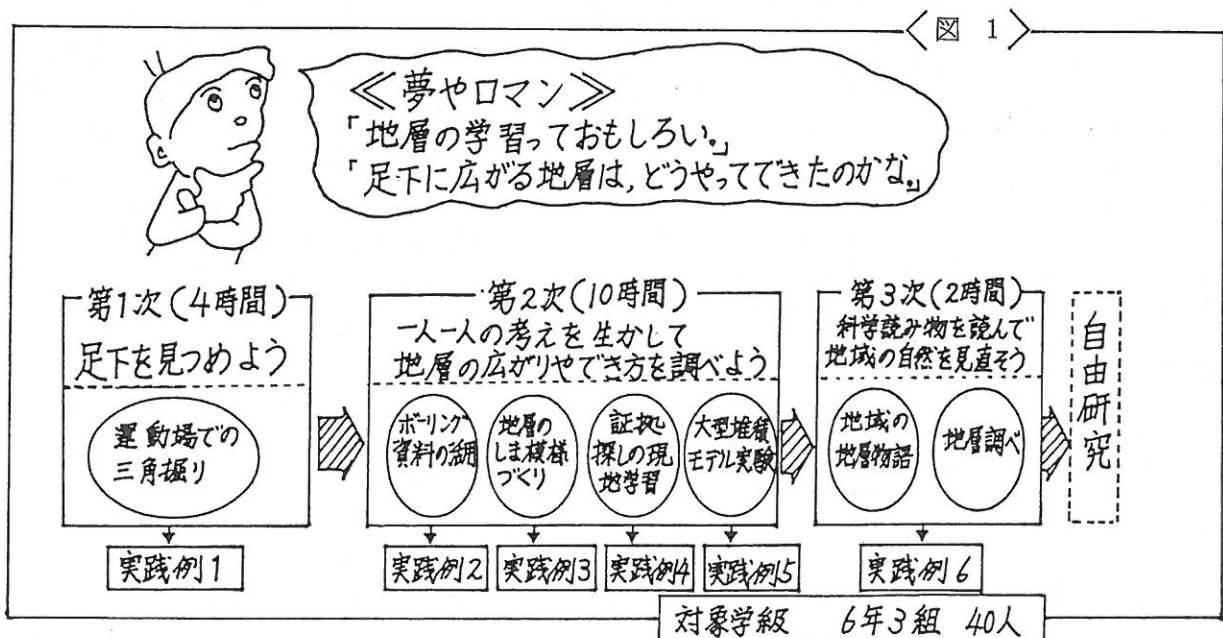 〈図 1〉
≪夢やロマン≫
「地層の学習っておもしろい。」
「足下に広がる地層は,どうやってできたのかな。」
第1次(4時間)
足下を見つめよう
運動場での
三角掘り
実践例1
第2次(10時間)
一人一人の考えを生かして
地層の広がりやでき方を調べよう
ボーリング
資料の活用
地層の
しま模様
づくり
証拠
探しの現
地学習
大型堆積
モデル実験
実践例2
実践例3
実践例4
実践例5
第3次(2時間)
科学読み物を読んで
地域の自然を見直そう
地域の
地層物語
地層調べ
実践例6
自由研究
対象学級 6年3組 40人